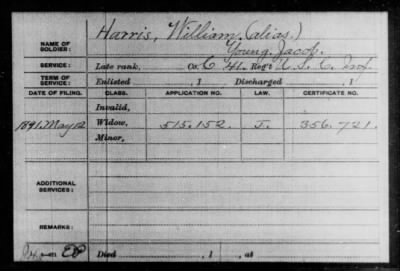 Harris, William. (alias.)
NAME OF SOLDIER: Young, Jacob.
SERVICE: Late rank, Co. C 41 Reg't U. S. C. Inf.
TERM OF SERVICE: Enlisted , 1 Discharged , 1
DATE OF FILING. CLASS. APPLICATION NO. LAW. CERTIFICATE NO.
Invalid,
1891. May 12 Widow, 515.152. J. 356.721.
Minor,
ADDITIONAL SERVICES:
REMARKS:
Died , 1 , at